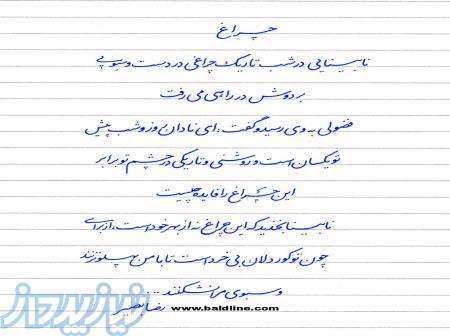 چراغ
نابینایی در شب تاریک چراغی در دست و سبویی
بر دوش در راهی می رفت
فضولی به وی رسید و گفت: ای نادان روز و شب پیش
تو یکسان است و روشنی و تاریکی در چشم تو برابر
این چراغ را فایده چیست
نابینا بخندید که این چراغ نه از بهر خود است، از برای
چون تو کور دلان بی خرد است تا با من پهلو نزنند
و سبوی مرا نشکنند ...
رضا نصیر
www.baldline.com
نیازپرداز